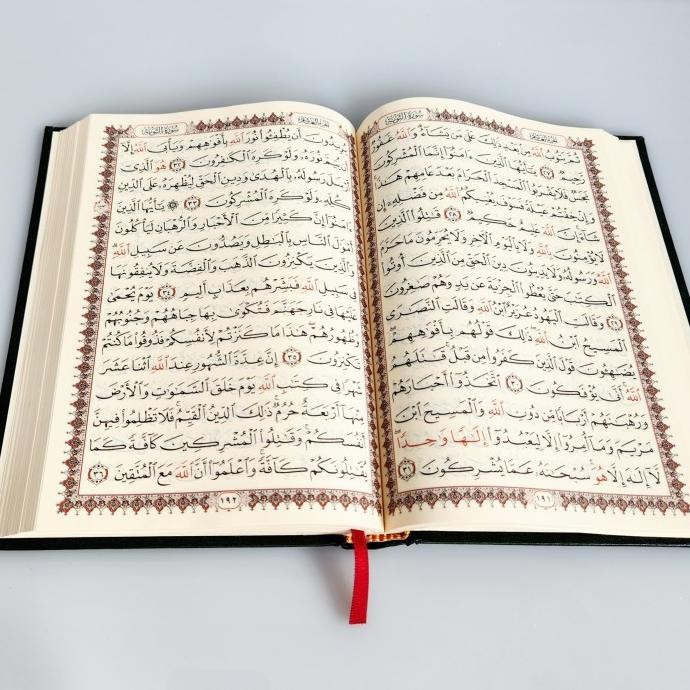 سُورَةُ التَّوْبَةِ الجُزْءُ العَاشِرُ
ثُمَّ يَتُوبُ ٱللَّهُ مِنۢ بَعْدِ ذَٰلِكَ عَلَىٰ مَن يَشَآءُ وَٱللَّهُ غَفُورٌ
رَّحِيمٌ ٢٧ يَٰٓأَيُّهَا ٱلَّذِينَ ءَامَنُوٓا۟ إِنَّمَا ٱلْمُشْرِكُونَ
نَجَسٌ فَلَا يَقْرَبُوا۟ ٱلْمَسْجِدَ ٱلْحَرَامَ بَعْدَ عَامِهِمْ هَٰذَا
وَإِنْ خِفْتُمْ عَيْلَةً فَسَوْفَ يُغْنِيكُمُ ٱللَّهُ مِن فَضْلِهِۦٓ إِن
شَآءَ إِنَّ ٱللَّهَ عَلِيمٌ حَكِيمٌ ٢٨ قَٰتِلُوا۟ ٱلَّذِينَ
لَا يُؤْمِنُونَ بِٱللَّهِ وَلَا بِٱلْيَوْمِ ٱلْءَاخِرِ وَلَا يُحَرِّمُونَ مَا حَرَّمَ
ٱللَّهُ وَرَسُولُهُۥ وَلَا يَدِينُونَ دِينَ ٱلْحَقِّ مِنَ ٱلَّذِينَ أُوتُوا۟
ٱلْكِتَٰبَ حَتَّىٰ يُعْطُوا۟ ٱلْجِزْيَةَ عَن يَدٍ وَهُمْ صَٰغِرُونَ
٢٩ وَقَالَتِ ٱلْيَهُودُ عُزَيْرٌ ٱبْنُ ٱللَّهِ وَقَالَتِ ٱلنَّصَٰرَى
ٱلْمَسِيحُ ٱبْنُ ٱللَّهِ ذَٰلِكَ قَوْلُهُم بِأَفْوَٰهِهِمْ
يُضَٰهِـُٔونَ قَوْلَ ٱلَّذِينَ كَفَرُوا۟ مِن قَبْلُ قَٰتَلَهُمُ
ٱللَّهُ أَنَّىٰ يُؤْفَكُونَ ٣٠ ٱتَّخَذُوٓا۟ أَحْبَارَهُمْ
وَرُهْبَٰنَهُمْ أَرْبَابًا مِّن دُونِ ٱللَّهِ وَٱلْمَسِيحَ ٱبْنَ
مَرْيَمَ وَمَآ أُمِرُوٓا۟ إِلَّا لِيَعْبُدُوٓا۟ إِلَٰهًا وَٰحِدًا
لَّآ إِلَٰهَ إِلَّا هُوَ سُبْحَٰنَهُۥ عَمَّا يُشْرِكُونَ ٣١
١٩١
سُورَةُ التَّوْبَةِ الجُزْءُ العَاشِرُ
يُرِيدُونَ أَن يُطْفِـُٔوا۟ نُورَ ٱللَّهِ بِأَفْوَٰهِهِمْ وَيَأْبَى ٱللَّهُ إِلَّآ
أَن يُتِمَّ نُورَهُۥ وَلَوْ كَرِهَ ٱلْكَٰفِرُونَ ٣٢ هُوَ ٱلَّذِىٓ
أَرْسَلَ رَسُولَهُۥ بِٱلْهُدَىٰ وَدِينِ ٱلْحَقِّ لِيُظْهِرَهُۥ عَلَى ٱلدِّينِ
كُلِّهِۦ وَلَوْ كَرِهَ ٱلْمُشْرِكُونَ ٣٣ يَٰٓأَيُّهَا ٱلَّذِينَ
ءَامَنُوٓا۟ إِنَّ كَثِيرًا مِّنَ ٱلْأَحْبَارِ وَٱلرُّهْبَانِ لَيَأْكُلُونَ
أَمْوَٰلَ ٱلنَّاسِ بِٱلْبَٰطِلِ وَيَصُدُّونَ عَن سَبِيلِ ٱللَّهِ
وَٱلَّذِينَ يَكْنِزُونَ ٱلذَّهَبَ وَٱلْفِضَّةَ وَلَا يُنفِقُونَهَا
فِى سَبِيلِ ٱللَّهِ فَبَشِّرْهُم بِعَذَابٍ أَلِيمٍ ٣٤ يَوْمَ يُحْمَىٰ
عَلَيْهَا فِى نَارِ جَهَنَّمَ فَتُكْوَىٰ بِهَا جِبَاهُهُمْ وَجُنُوبُهُمْ
وَظُهُورُهُمْ هَٰذَا مَا كَنَزْتُمْ لِأَنفُسِكُمْ فَذُوقُوا۟ مَا كُنتُمْ
تَكْنِزُونَ ٣٥ إِنَّ عِدَّةَ ٱلشُّهُورِ عِندَ ٱللَّهِ ٱثْنَا عَشَرَ
شَهْرًا فِى كِتَٰبِ ٱللَّهِ يَوْمَ خَلَقَ ٱلسَّمَٰوَٰتِ وَٱلْأَرْضَ
مِنْهَآ أَرْبَعَةٌ حُرُمٌ ذَٰلِكَ ٱلدِّينُ ٱلْقَيِّمُ فَلَا تَظْلِمُوا۟ فِيهِنَّ
أَنفُسَكُمْ وَقَٰتِلُوا۟ ٱلْمُشْرِكِينَ كَآفَّةً كَمَا
يُقَٰتِلُونَكُمْ كَآفَّةً وَٱعْلَمُوٓا۟ أَنَّ ٱللَّهَ مَعَ ٱلْمُتَّقِينَ ٣٦
١٩٢